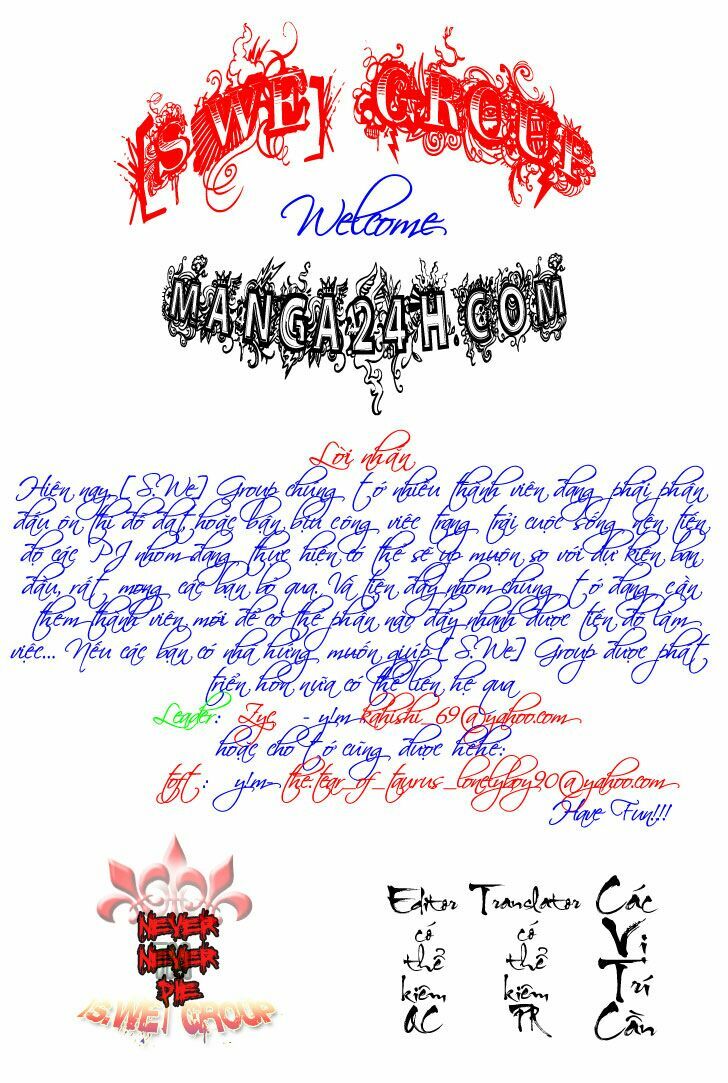 [S.WE] GROUP
Welcome
MANGA24H.COM
Lời nhắn
Hiện nay [S.We] Group chúng tớ nhiều thành viên đang phải phấn
đấu ôn thi đỗ đạt hoặc bận bịu công việc trang trải cuộc sống nên tiến
độ các PJ nhóm đang thực hiện có thể sẽ up muộn so với dự kiến ban
đầu, rất mong các bạn bỏ qua. Và tiện đây nhóm chúng tớ đang cần
thêm thành viên mới để có thể phần nào đẩy nhanh được tiến độ làm
việc... Nếu các bạn có nhã hứng muốn giúp [S.We] Group được phát
triển hơn nữa có thể liên hệ qua
Leader: Zyc - y!m kahishi_69@yahoo.com
hoặc cho tớ cũng được hehe:
toft: y!m- the.tear_of_taurus_lonelyboy90@yahoo.com
Have Fun!!!
NEVER
NEVER
DIE
[S.WE] GROUP
Các
Vị
Trí
Cần
Translator
có
thể
kiêm
PR
Editor
có
thể
kiêm
QC